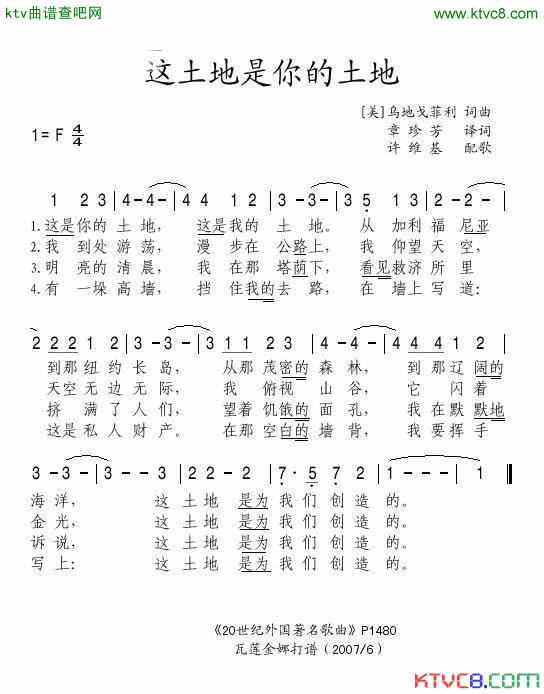 ktv曲谱查吧网 www.ktvc8.com
这土地是你的土地
[美]乌地戈菲利 词曲
1=F 4/4 章珍芳 译词
许维基 配歌
1 2 3 | 4-4- | 4 4 1 2 | 3-3- | 3 5 1 3 | 2-2-
1.这是你的土地, 这是我的土地。从加利福尼亚
2.我到处游荡, 漫步在公路上, 我仰望天空,
3.明亮的清晨, 我在那塔荫下, 看见救济所里
4.有一垛高墙, 挡住我的去路, 在墙上写道:
2 2 2 2 1 | 3-3- | 3 1 1 2 3 | 4-4- | 4 4 4 1 2
到那纽约长岛, 从那茂密的森林, 到那辽阔的
天空无边无际, 我俯视山谷, 它闪着
挤满了人们, 望着饥饿的面孔, 我在默默地
这是私人财产。在那空白的墙背, 我要挥手
3-3- | 3 3 2 1 | 2-2- | 7· 5 7 2 | 1-1- | 1 ‖
海洋, 这土地是为我们创造的。
金光, 这土地是为我们创造的。
诉说, 这土地是为我们创造的。
写上: 这土地是为我们创造的。
《20世纪外国著名歌曲》P1480
瓦莲金娜打谱(2007/6)
KTVC8.com